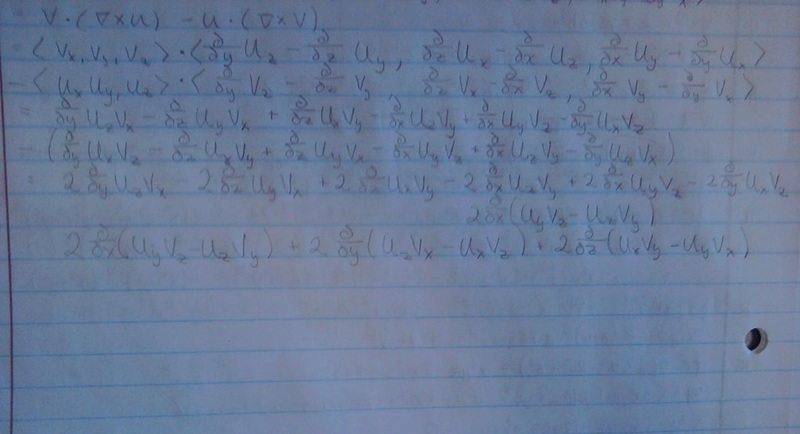 V · (∇×U) − U · (∇×V)
= ⟨V_x, V_y, V_z⟩ · ⟨∂/∂y U_z − ∂/∂z U_y, ∂/∂z U_x − ∂/∂x U_z, ∂/∂x U_y − ∂/∂y U_x⟩
− ⟨U_x U_y, U_z⟩ · ⟨∂/∂y V_z − ∂/∂z V_y, ∂/∂z V_x − ∂/∂x V_z, ∂/∂x V_y − ∂/∂y V_x⟩
= ∂/∂y U_z V_x − ∂/∂z U_y V_x + ∂/∂z U_x V_y − ∂/∂x U_z V_y + ∂/∂x U_y V_z − ∂/∂y U_x V_z
− (∂/∂y U_x V_z − ∂/∂z U_x V_y + ∂/∂z U_y V_x − ∂/∂x U_y V_z + ∂/∂x U_z V_y − ∂/∂y U_z V_x)
= 2 ∂/∂y U_z V_x − 2 ∂/∂z U_y V_x + 2 ∂/∂z U_x V_y − 2 ∂/∂x U_z V_y + 2 ∂/∂x U_y V_z − 2 ∂/∂y U_x V_z
2 ∂/∂x (U_y V_z − U_z V_y)
2 ∂/∂x (U_y V_z − U_z V_y) + 2 ∂/∂y (U_z V_x − U_x V_z) + 2 ∂/∂z (U_x V_y − U_y V_x)